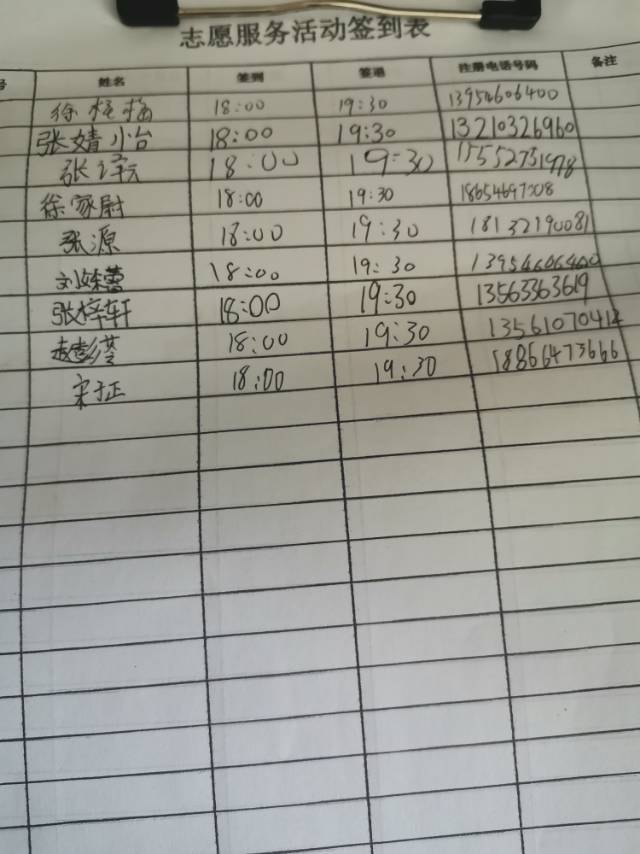 志愿服务活动签到表
号 姓名 签到 签退 注册电话号码 备注
徐梅 18:00 19:30 13954606400
张婧小台 18:00 19:30 13210326960
张译云 18:00 19:30
徐家尉 18:00 19:30 18654697008
张源 18:00 19:30 18132190081
刘 18:00 19:30 13954606400
张梓轩 18:00 19:30 13563363619
赵彭苓 18:00 19:30
宋士正 18:00 19:30 18866473666